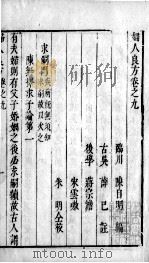 婦人良方卷之九
臨川 陳自明 編
古吳 薛已 註
後學 蔣宗澹
朱明 仝校
求嗣門
陳無擇求子論第一
有夫婦則有父子婚姻之後必求嗣續故古人謂